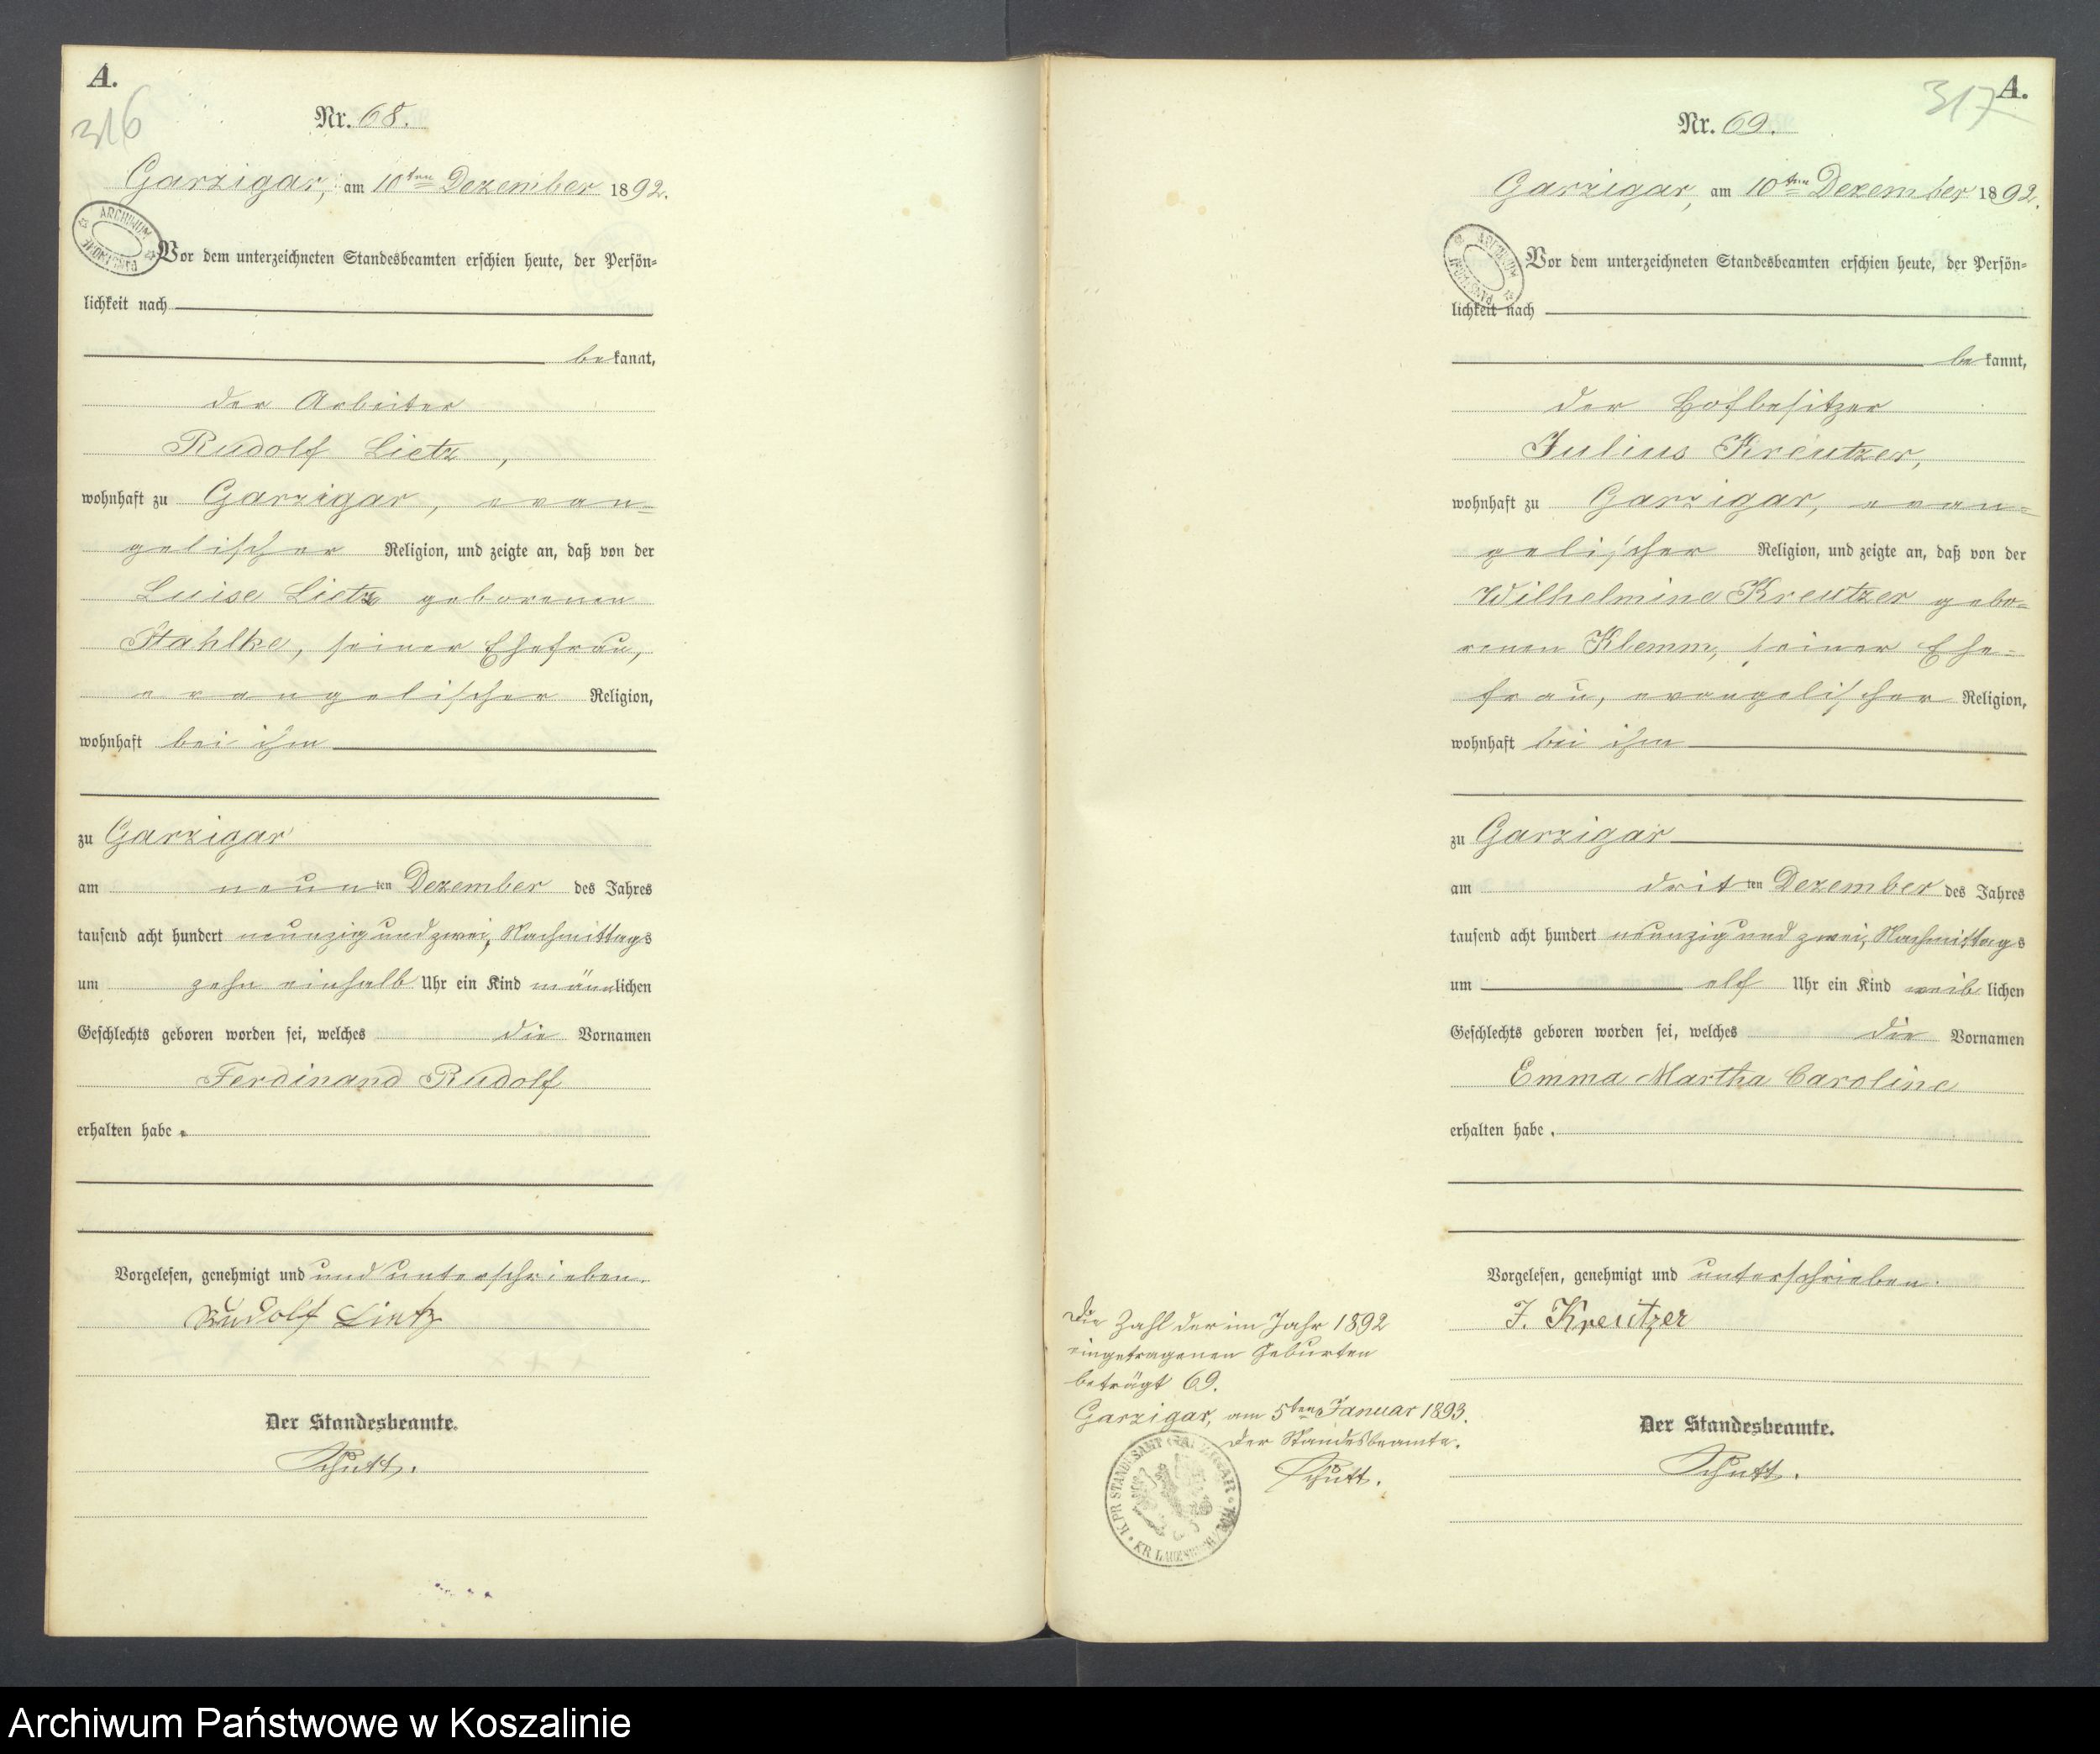 A.
316
Nr. 68.
Garzigar, am 10ten Dezember 1892.
ARCHIWUM PAŃSTWOWE
Vor dem unterzeichneten Standesbeamten erschien heute, der Persön=
lichkeit nach
be kannt,
der Arbeiter
Rudolf Lietz,
wohnhaft zu Garzigar, evan=
gelischer Religion, und zeigte an, daß von der
Luise Lietz geborenen
Stahlke, seiner Ehefrau,
evangelischer Religion,
wohnhaft bei ihm
zu Garzigar
am neun ten Dezember des Jahres
tausend acht hundert neunzig und zwei, Nachmittags
um zehn einhalb Uhr ein Kind männlichen
Geschlechts geboren worden sei, welches die Vornamen
Ferdinand Rudolf
erhalten habe.
Vorgelesen, genehmigt und und unterschrieben.
Rudolf Lietz
Der Standesbeamte.
Schutt.
317
A.
Nr. 69.
Garzigar, am 10ten Dezember 1892.
ARCHIWUM PAŃSTWOWE
Vor dem unterzeichneten Standesbeamten erschien heute, der Persön=
lichkeit nach
be kannt,
der Hofbesitzer
Julius Kreutzer,
wohnhaft zu Garzigar, evan=
gelischer Religion, und zeigte an, daß von der
Wilhelmine Kreutzer gebo=
renen Klemm, seiner Ehe=
frau, evangelischer Religion,
wohnhaft bei ihm
zu Garzigar
am drit ten Dezember des Jahres
tausend acht hundert neunzig und zwei, Nachmittags
um elf Uhr ein Kind weib lichen
Geschlechts geboren worden sei, welches die Vornamen
Emma Martha Caroline
erhalten habe.
Vorgelesen, genehmigt und unterschrieben.
J. Kreutzer
Der Standesbeamte.
Schutt.
Die Zahl der im Jahr 1892
eingetragenen Geburten
beträgt 69.
Garzigar, am 5ten Januar 1893.
Der Standesbeamte.
Schutt.
K. PR. STANDESAMT GARZIGAR
KR. LAUENBURG
Archiwum Państwowe w Koszalinie